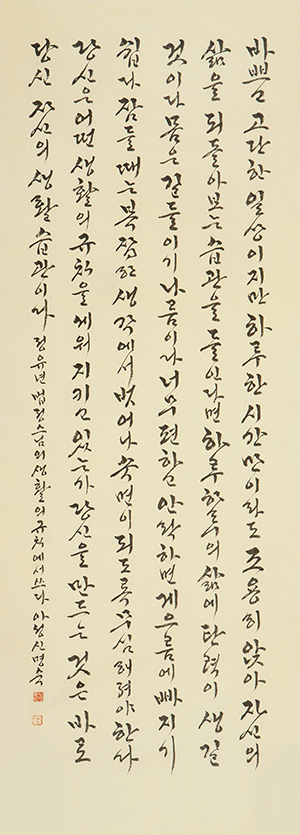 바쁘고 고단한 일상이지만 하루 한 시간만이라도 조용히 앉아 자신의
삶을 되돌아보는 습관을 들인다면 하루하루의 삶에 탄력이 생길
것이다 몸은 길들이기 나름이다 너무 편하고 안락하면 게으름에 빠지기
쉽다 잠들 때는 복잡한 생각에서 벗어나 숙면이 되도록 무심해져야 한다
당신은 어떤 생활의 규칙을 세워 지키고 있는가 당신을 만드는 것은 바로
당신 자신의 생활습관이다 정유년 법정스님의 생활의 규칙에서 쓰다 아정 신명숙